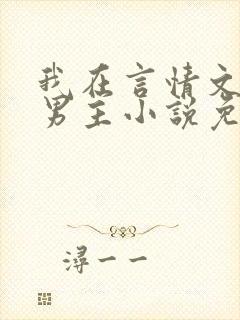 我在言情文
男主小說免
潯一一